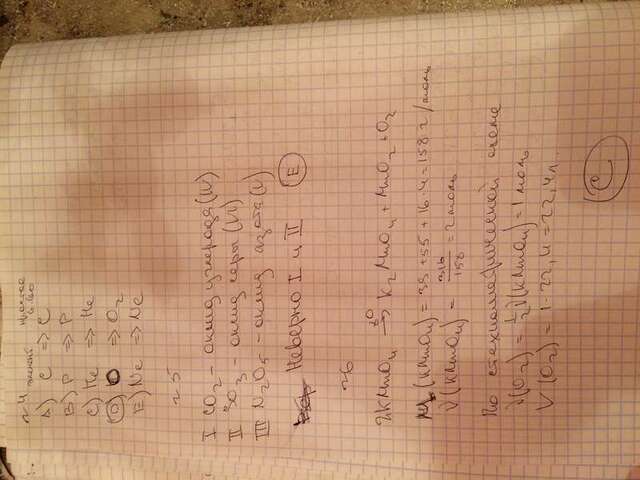 №4 элемент простое в-во
A) C => C
B) P => P
C) He => He
D) O => O₂
E) Ne => Ne
№5
I CO₂ - оксид углерода (IV)
II SO₃ - оксид серы (VI)
III N₂O₅ - оксид азота (V)
Неверно I и II E
№6
2KMnO₄ →t° K₂MnO₄ + MnO₂ + O₂
M(KMnO₄) = 39 + 55 + 16·4 = 158 г/моль
ν(KMnO₄) = 316/158 = 2 моль
По стехиометрической схеме
ν(O₂) = 1/2 ν(KMnO₄) = 1 моль
V(O₂) = 1·22,4 = 22,4 л
C